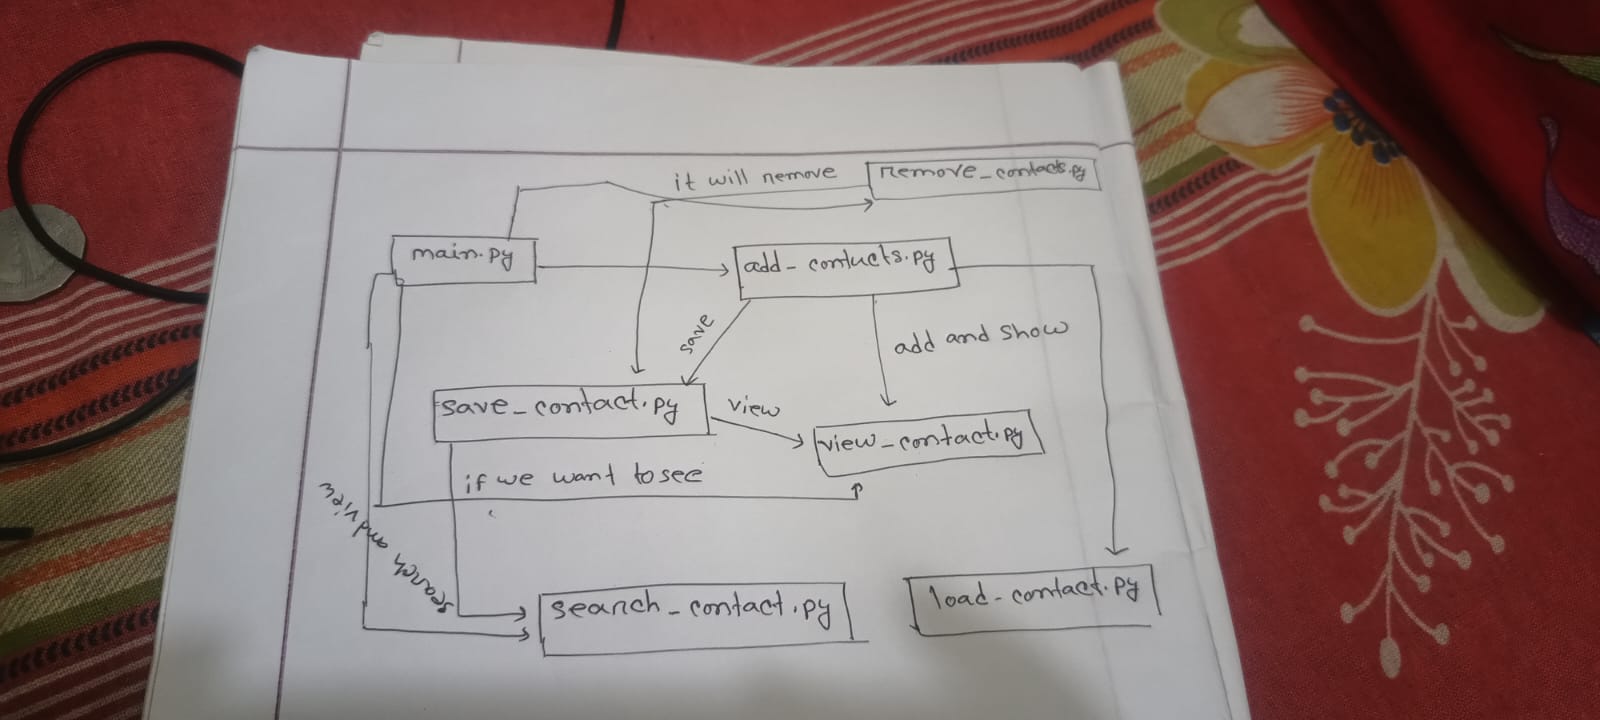 it will remove
remove_contacts.py
main.py
add_contucts.py
save
add and show
save_contact.py
view
view_contact.py
if we want to see
search and view
search_contact.py
load_contact.py